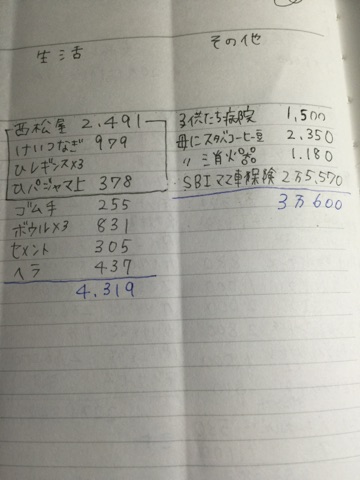 生活
西松屋 2.491
けいつなぎ 979
ひレギンス×3
ひパジャマ上 378
ゴム手 255
ボウル×3 831
セメント 305
ヘラ 437
4.319
その他
子供たち病院 1,500
母にスタバコーヒー豆 2.350
〃 消火器 1.180
SBIママ車保険 2万5,570
3万600